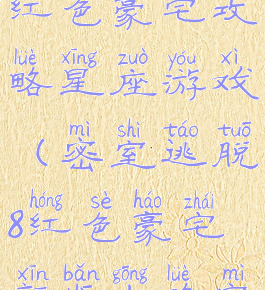 红色豪宅攻
lüè xīng zuò yóu xì
略星座游戏
mì shì táo tuō
(密室逃脱
hóng sè háo zhái
8红色豪宅
xīn bǎn gōng lüè mì